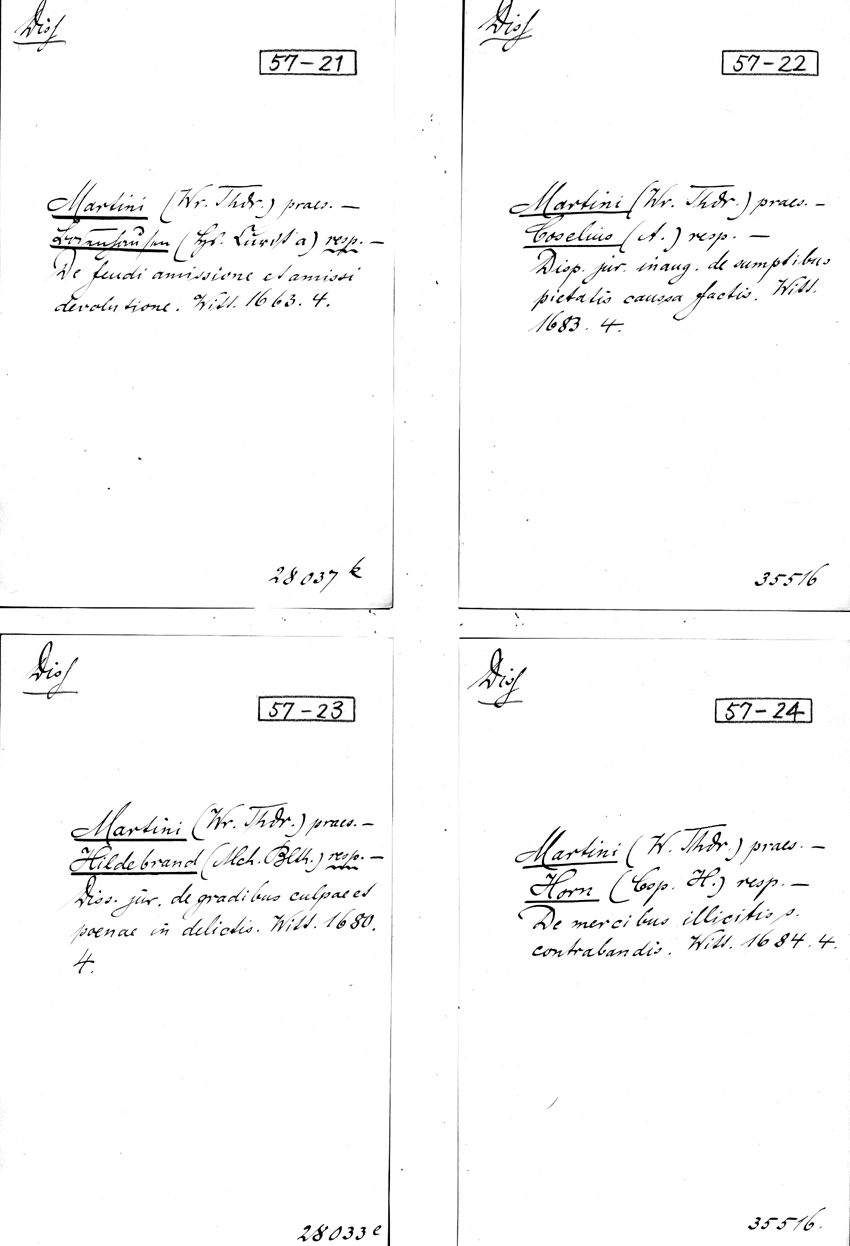 Diss
57-21
Martini (Wr. Thdr.) praes. —
resp. —
De feudi amissione et amissi
devolutione. Witt. 1663. 4.
28037 k
Diss
57-22
Martini (Wr. Thdr.) praes. —
Coselius (A.) resp. —
Disp. jur. inaug. de sumptibus
pietatis caussa factis. Witt.
1683. 4.
35516
Diss
57-23
Martini (Wr. Thdr.) praes. —
Hildebrand (Mch. Blth.) resp. —
Diss. jur. de gradibus culpae et
poenae in delictis. Witt. 1680.
4.
28033 e
Diss
57-24
Martini (W. Thdr.) praes. —
Horn (Csp. H.) resp. —
De mercibus illicitis s.
contrabandis. Witt. 1684. 4.
35516.